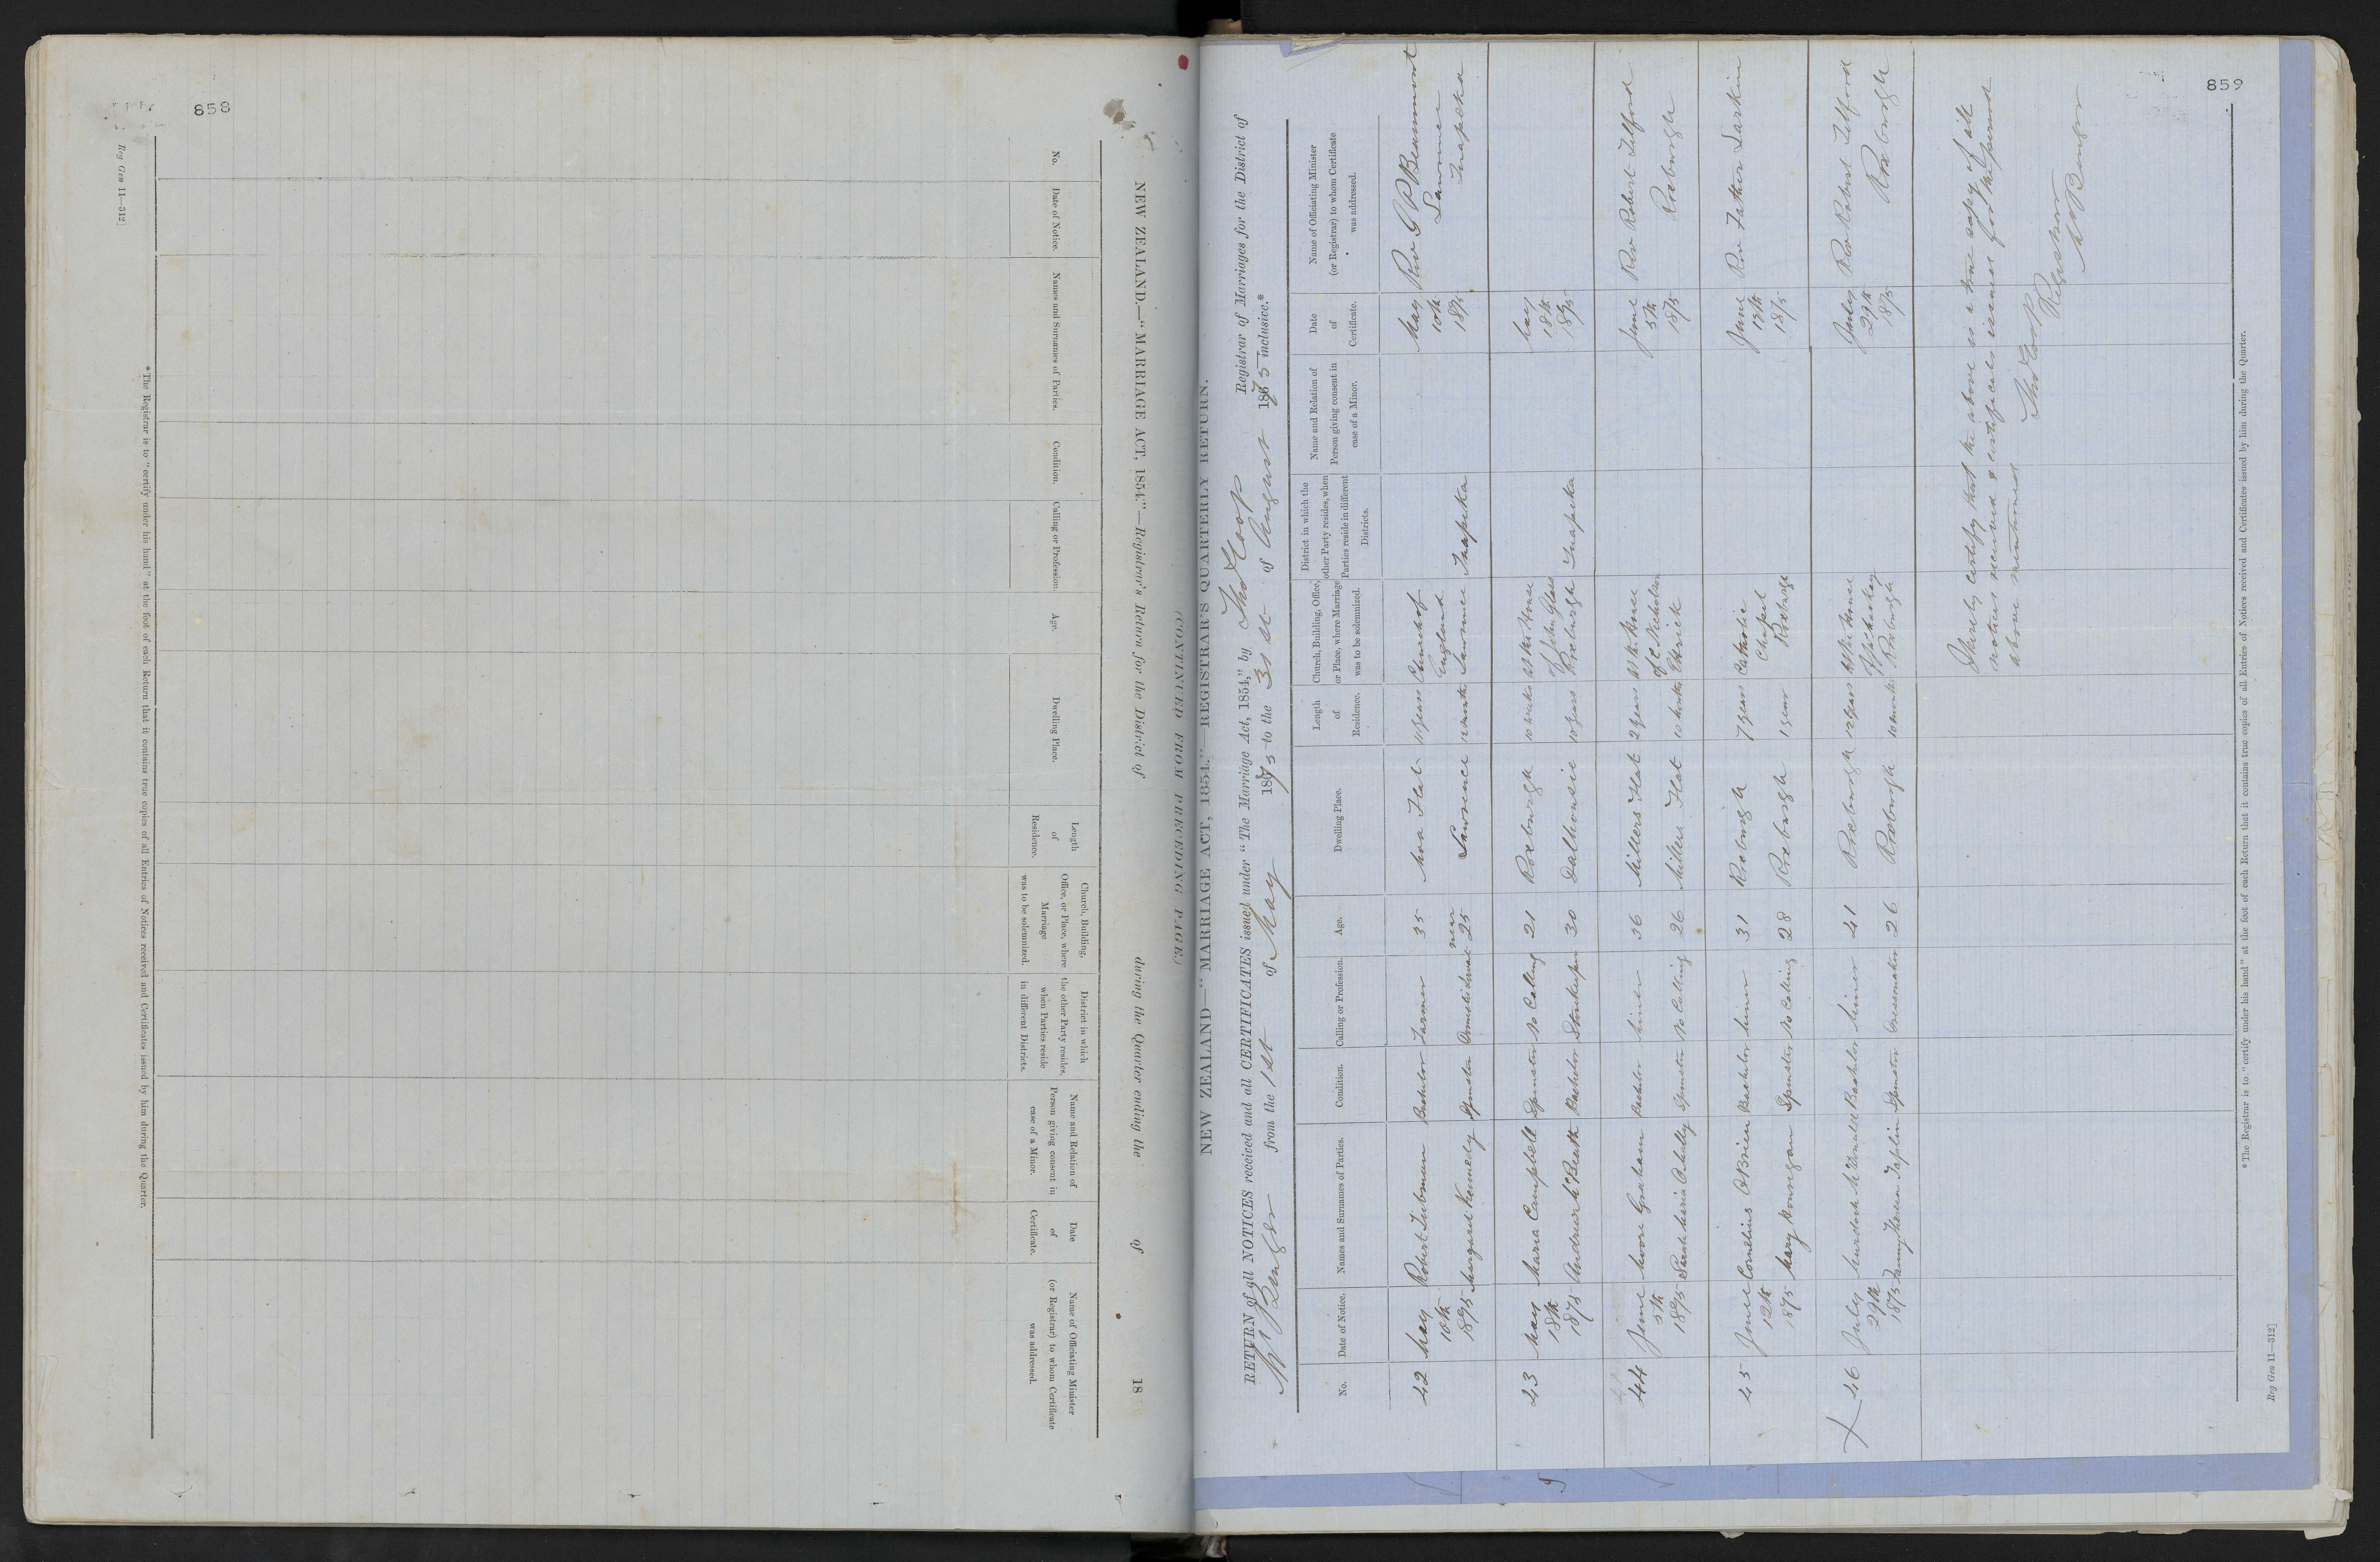 858
NEW ZEALAND.—"MARRIAGE ACT, 1854."—Registrar's Return for the District of during the Quarter ending the of 18
No.
Date of Notice.
Names and Surnames of Parties.
Condition.
Calling or Profession.
Age.
Dwelling Place.
Length
of
Residence.
Church, Building,
Office, or Place, where
Marriage
was to be solemnized.
District in which
the other Party resides,
when Parties reside
in different Districts.
Name and Relation of
Person giving consent in
case of a Minor.
Date
of
Certificate.
Name of Officiating Minister
(or Registrar) to whom Certificate
was addressed.
* The Registrar is to "certify under his hand" at the foot of each Return that it contains true copies of all Entries of Notices received and Certificates issued by him during the Quarter.
Reg Gen 11—312]
859
(CONTINUED FROM PRECEDING PAGE)
NEW ZEALAND—"MARRIAGE ACT, 1854."—REGISTRAR'S QUARTERLY RETURN.
RETURN of all NOTICES received and all CERTIFICATES issued under "The Marriage Act, 1854," by Thos Coop Registrar of Marriages for the District of
Mt Benger from the 1st of May 1875 to the 31st of August 1875 inclusive.*
No.
Date of Notice.
Names and Surnames of Parties.
Condition.
Calling or Profession.
Age.
Dwelling Place.
Length
of
Residence.
Church, Building, Office,
or Place, where Marriage
was to be solemnized.
District in which the
other Party resides, when
Parties reside in different
Districts.
Name and Relation of
Person giving consent in
case of a Minor.
Date
of
Certificate.
Name of Officiating Minister
(or Registrar) to whom Certificate
was addressed.
42
May
10th
1875
Robert Tubman
Margaret Kennedy
Bachelor
Spinster
Farmer
Domestic Servant
35
near
25
Moa Flat
Lawrence
10 years
12 months
Church of
England
Lawrence
Tuapeka
May
10th
1875
Rev G P Beaumont
Lawrence
Tuapeka
43
May
18th
1875
Maria Campbell
Andrew McBeath
Spinster
Bachelor
No Calling
Storekeeper
21
30
Roxburgh
Dalhousie
10 weeks
10 years
At the House
of John Glass
Roxburgh
Tuapeka
May
18th
1875
44
June
5th
1875
Moore Graham
Bachelor
Spinster
Miner
No Calling
36
26
Millers Flat
Millers Flat
2 years
10 months
At the House
of C Nicholson
Ettrick
June
5th
1875
Rev Robert Telford
Roxburgh
45
June
12th
1875
Cornelius OBrien
Mary Honregan
Bachelor
Spinster
Miner
No Calling
31
28
Roxburgh
Roxburgh
7 years
1 year
Catholic
Chapel
Roxburgh
June
17th
1875
Rev Father Larkin
46
July
29th
1875
Murdoch McDonald
Fanny Theresa Taplin
Bachelor
Spinster
Miner
Dressmaker
41
26
Roxburgh
Roxburgh
12 years
10 months
At the House
Roxburgh
July
29th
1875
Rev Robert Telford
Roxburgh
I hereby certify that the above is a true copy of all
notices received & certificates issued for the period
above mentioned
Thos Coop
Registrar
Mt Benger
* The Registrar is to "certify under his hand" at the foot of each Return that it contains true copies of all Entries of Notices received and Certificates issued by him during the Quarter.
Reg Gen 11—312]